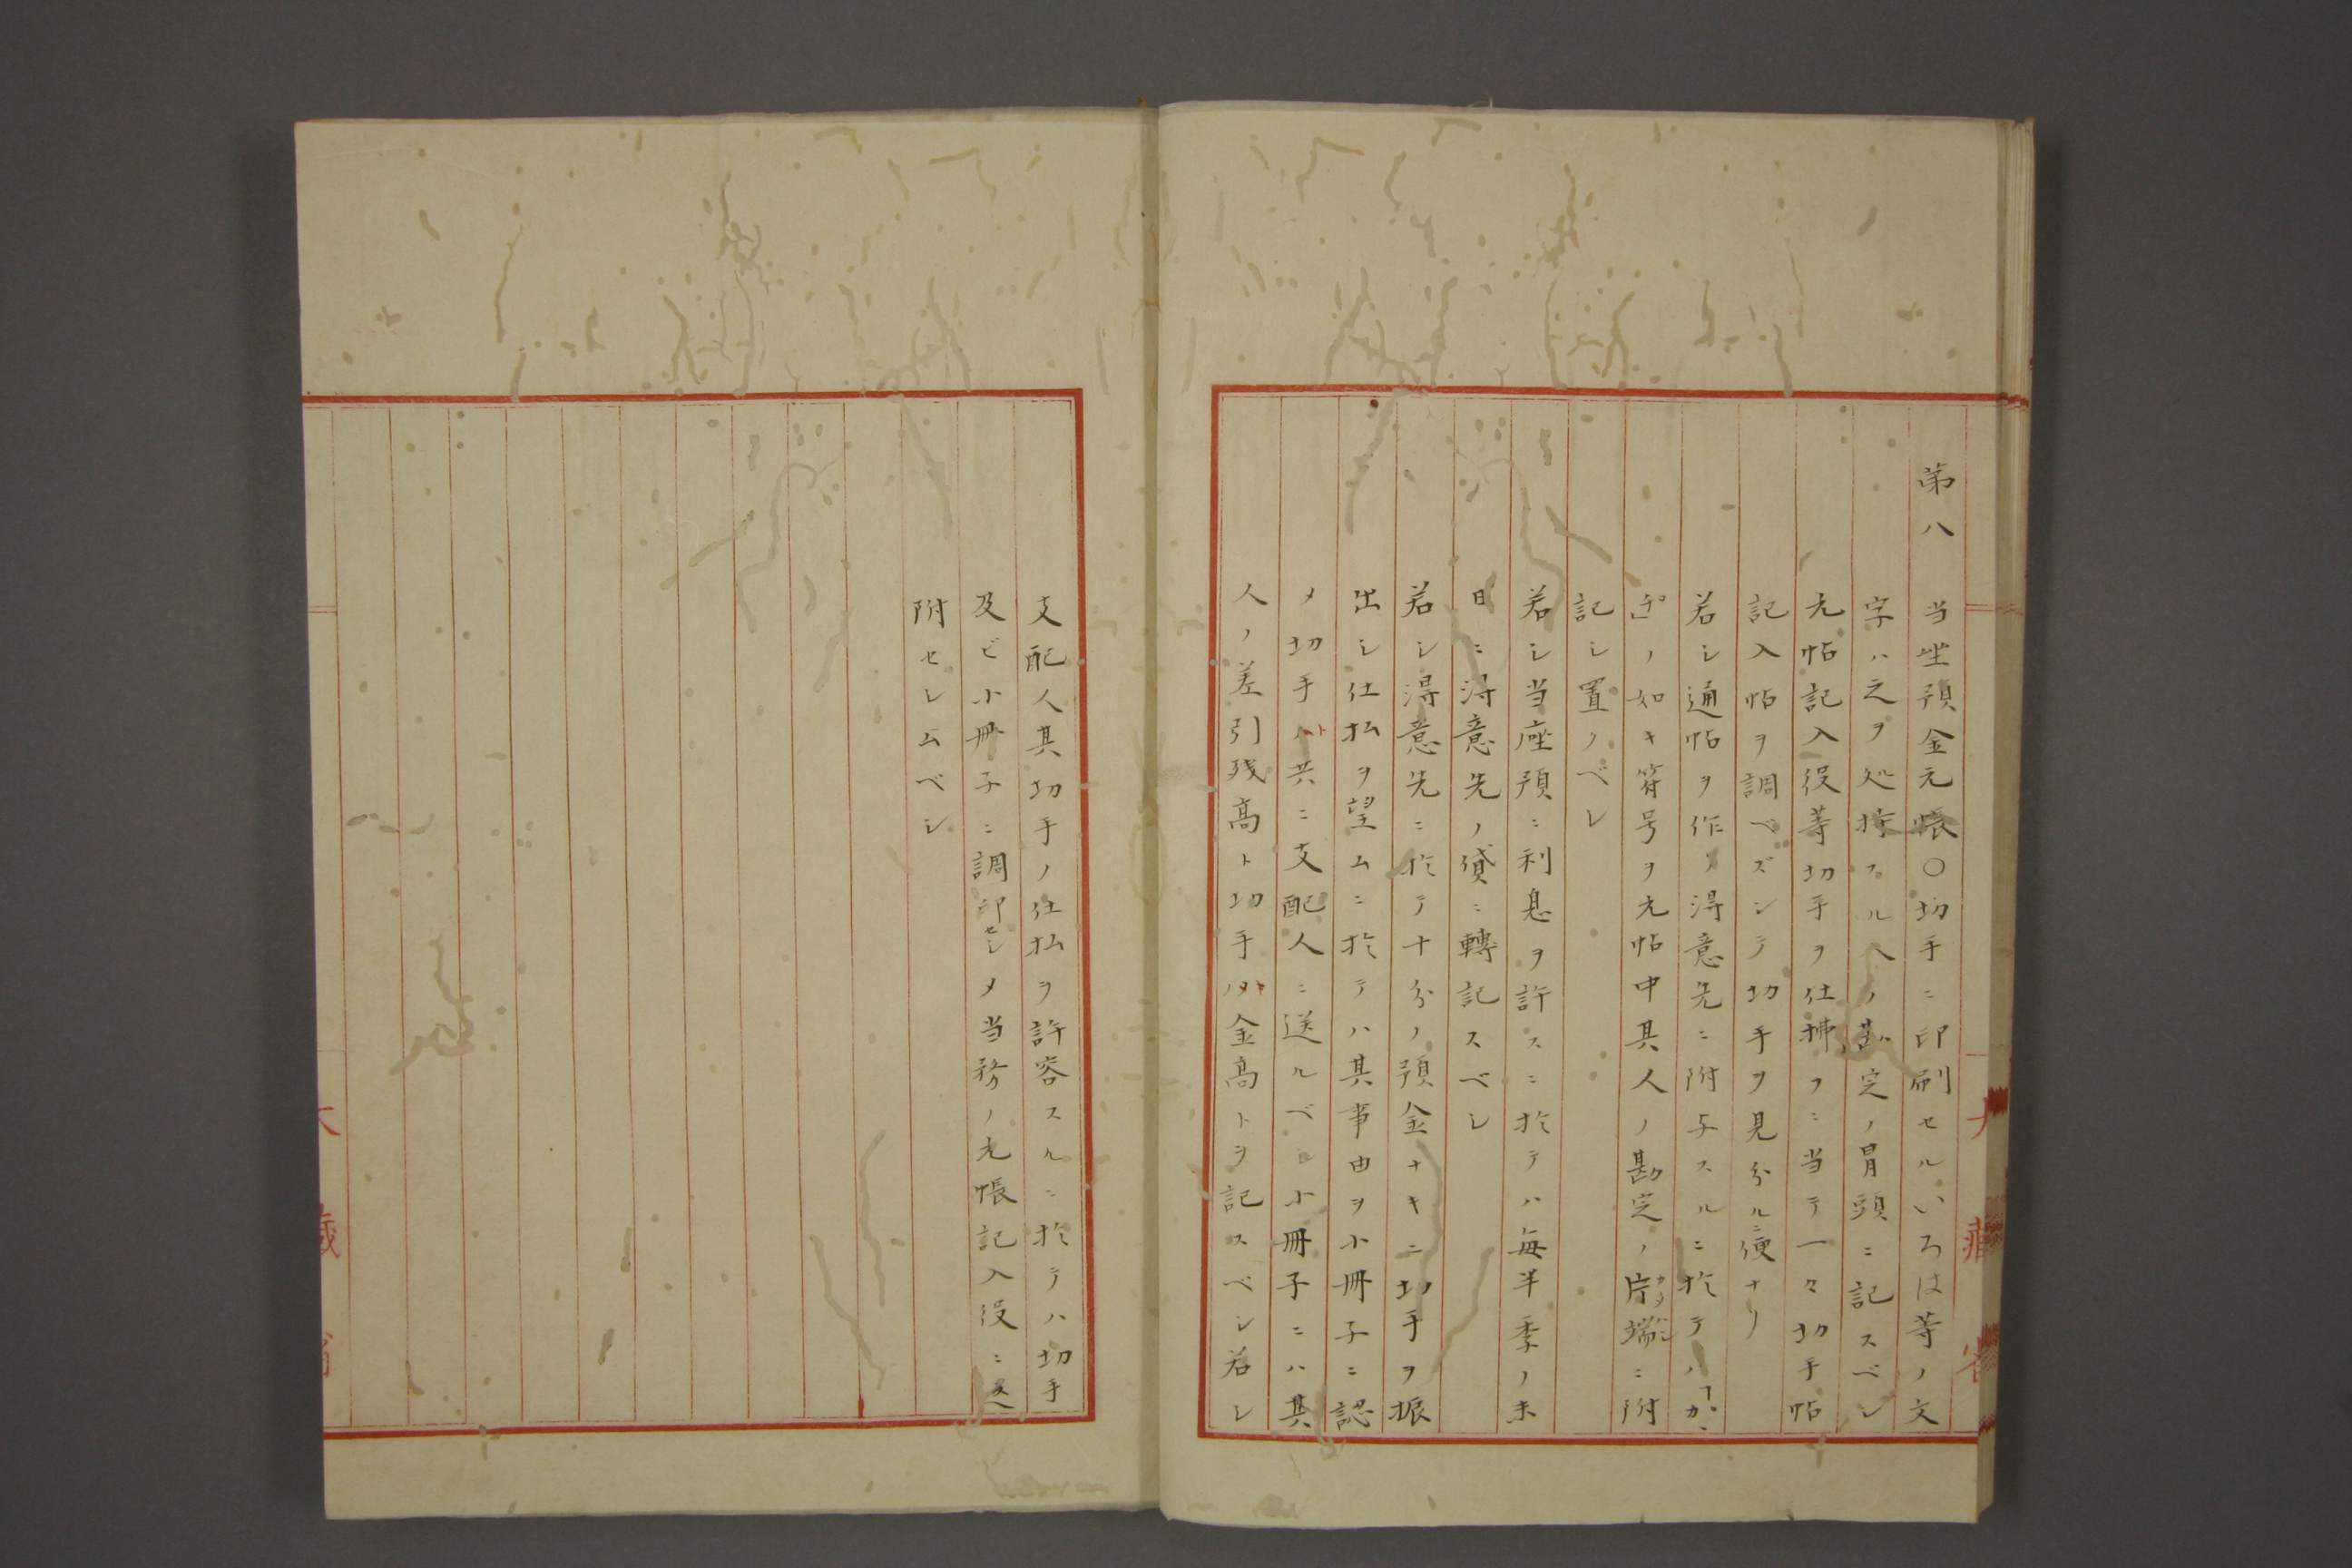 第八　当坐預金元帳〇切手ニ印刷セルいろは等ノ文
字ハ之ヲ処持スル人ノ勘定ノ冒頭ニ記スベシ
元帖記入役等切手ヲ仕拂フニ当テ一々切手帖
記入帖ヲ調ベズシテ切手ヲ見分ルニ便ナリ
若シ通帖ヲ作リ得意先ニ附与スルニ於テハ
ノ如キ符号ヲ元帖中其人ノ勘定ノ片端ニ附
記シ置クベシ
若シ当座預ニ利息ヲ許スニ於テハ毎半季ノ末
日ニ得意先ノ貸ニ轉記スベシ
若シ得意先ニ於テ十分ノ預金ナキニ切手ヲ振
出シ仕払ヲ望ムニ於テハ其事由ヲ小冊子ニ認
メ切手ト共ニ支配人ニ送ルベシ小冊子ニハ其
人ノ差引残高ト切手ノ金高トヲ記スベシ若シ
支配人其切手ノ仕払ヲ許容スルニ於テハ切手
及ビ小冊子ニ調印セシメ当務ノ元帳記入役ニ送
附セシムベシ
大蔵省